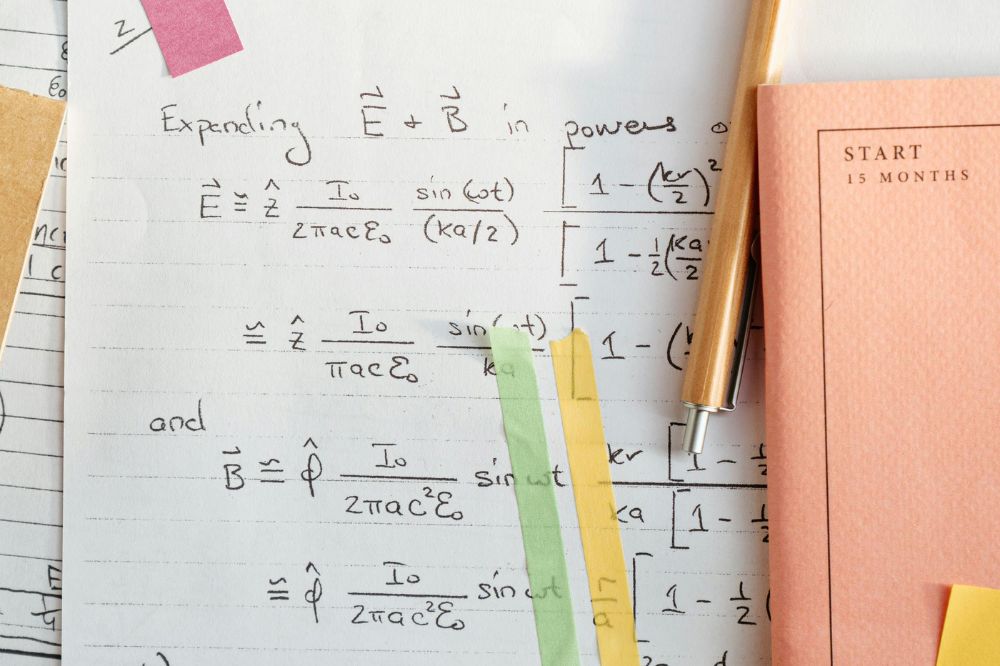 2
Expanding E⃗ + B⃗ in powers
E⃗ ≅ ẑ I₀/(2πacε₀) sin(ωt)/(ka/2) [1 - (kr/2)² / [1 - ½(ka/2
≅ ẑ I₀/(πacε₀) sin(ωt)/ka [1 - (
and
B⃗ ≅ φ̂ I₀/(2πac²ε₀) sin ωt kr [1 - ½ / ka [1 - ½
≅ φ̂ I₀/(2πac²ε₀) sin ωt r/a [1 - ½ (
START
15 MONTHS